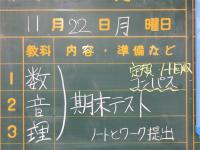 11月22日月曜日
教科 内容・準備など
1 数 定規
コンパス
2 音 期末テスト
3 理 ノートとワーク提出